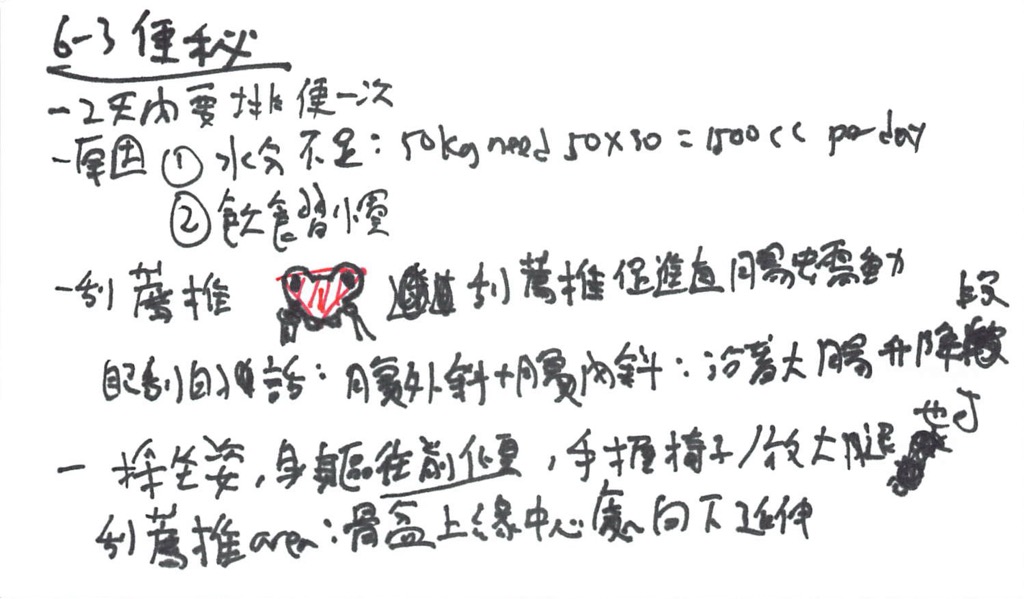 6-3 便秘
-2天內要排便一次
-原因 ① 水分不足：50kg need 50x30 = 1500cc per day
② 飲食習慣
-刮薦椎 刮薦椎促進直腸蠕動
自己刮自己的話：腹外斜+腹內斜：沿著大腸升降段
- 採坐姿，身軀往前傾，手握椅子/放大腿也可
刮薦椎area：骨盆上緣中心處向下延伸